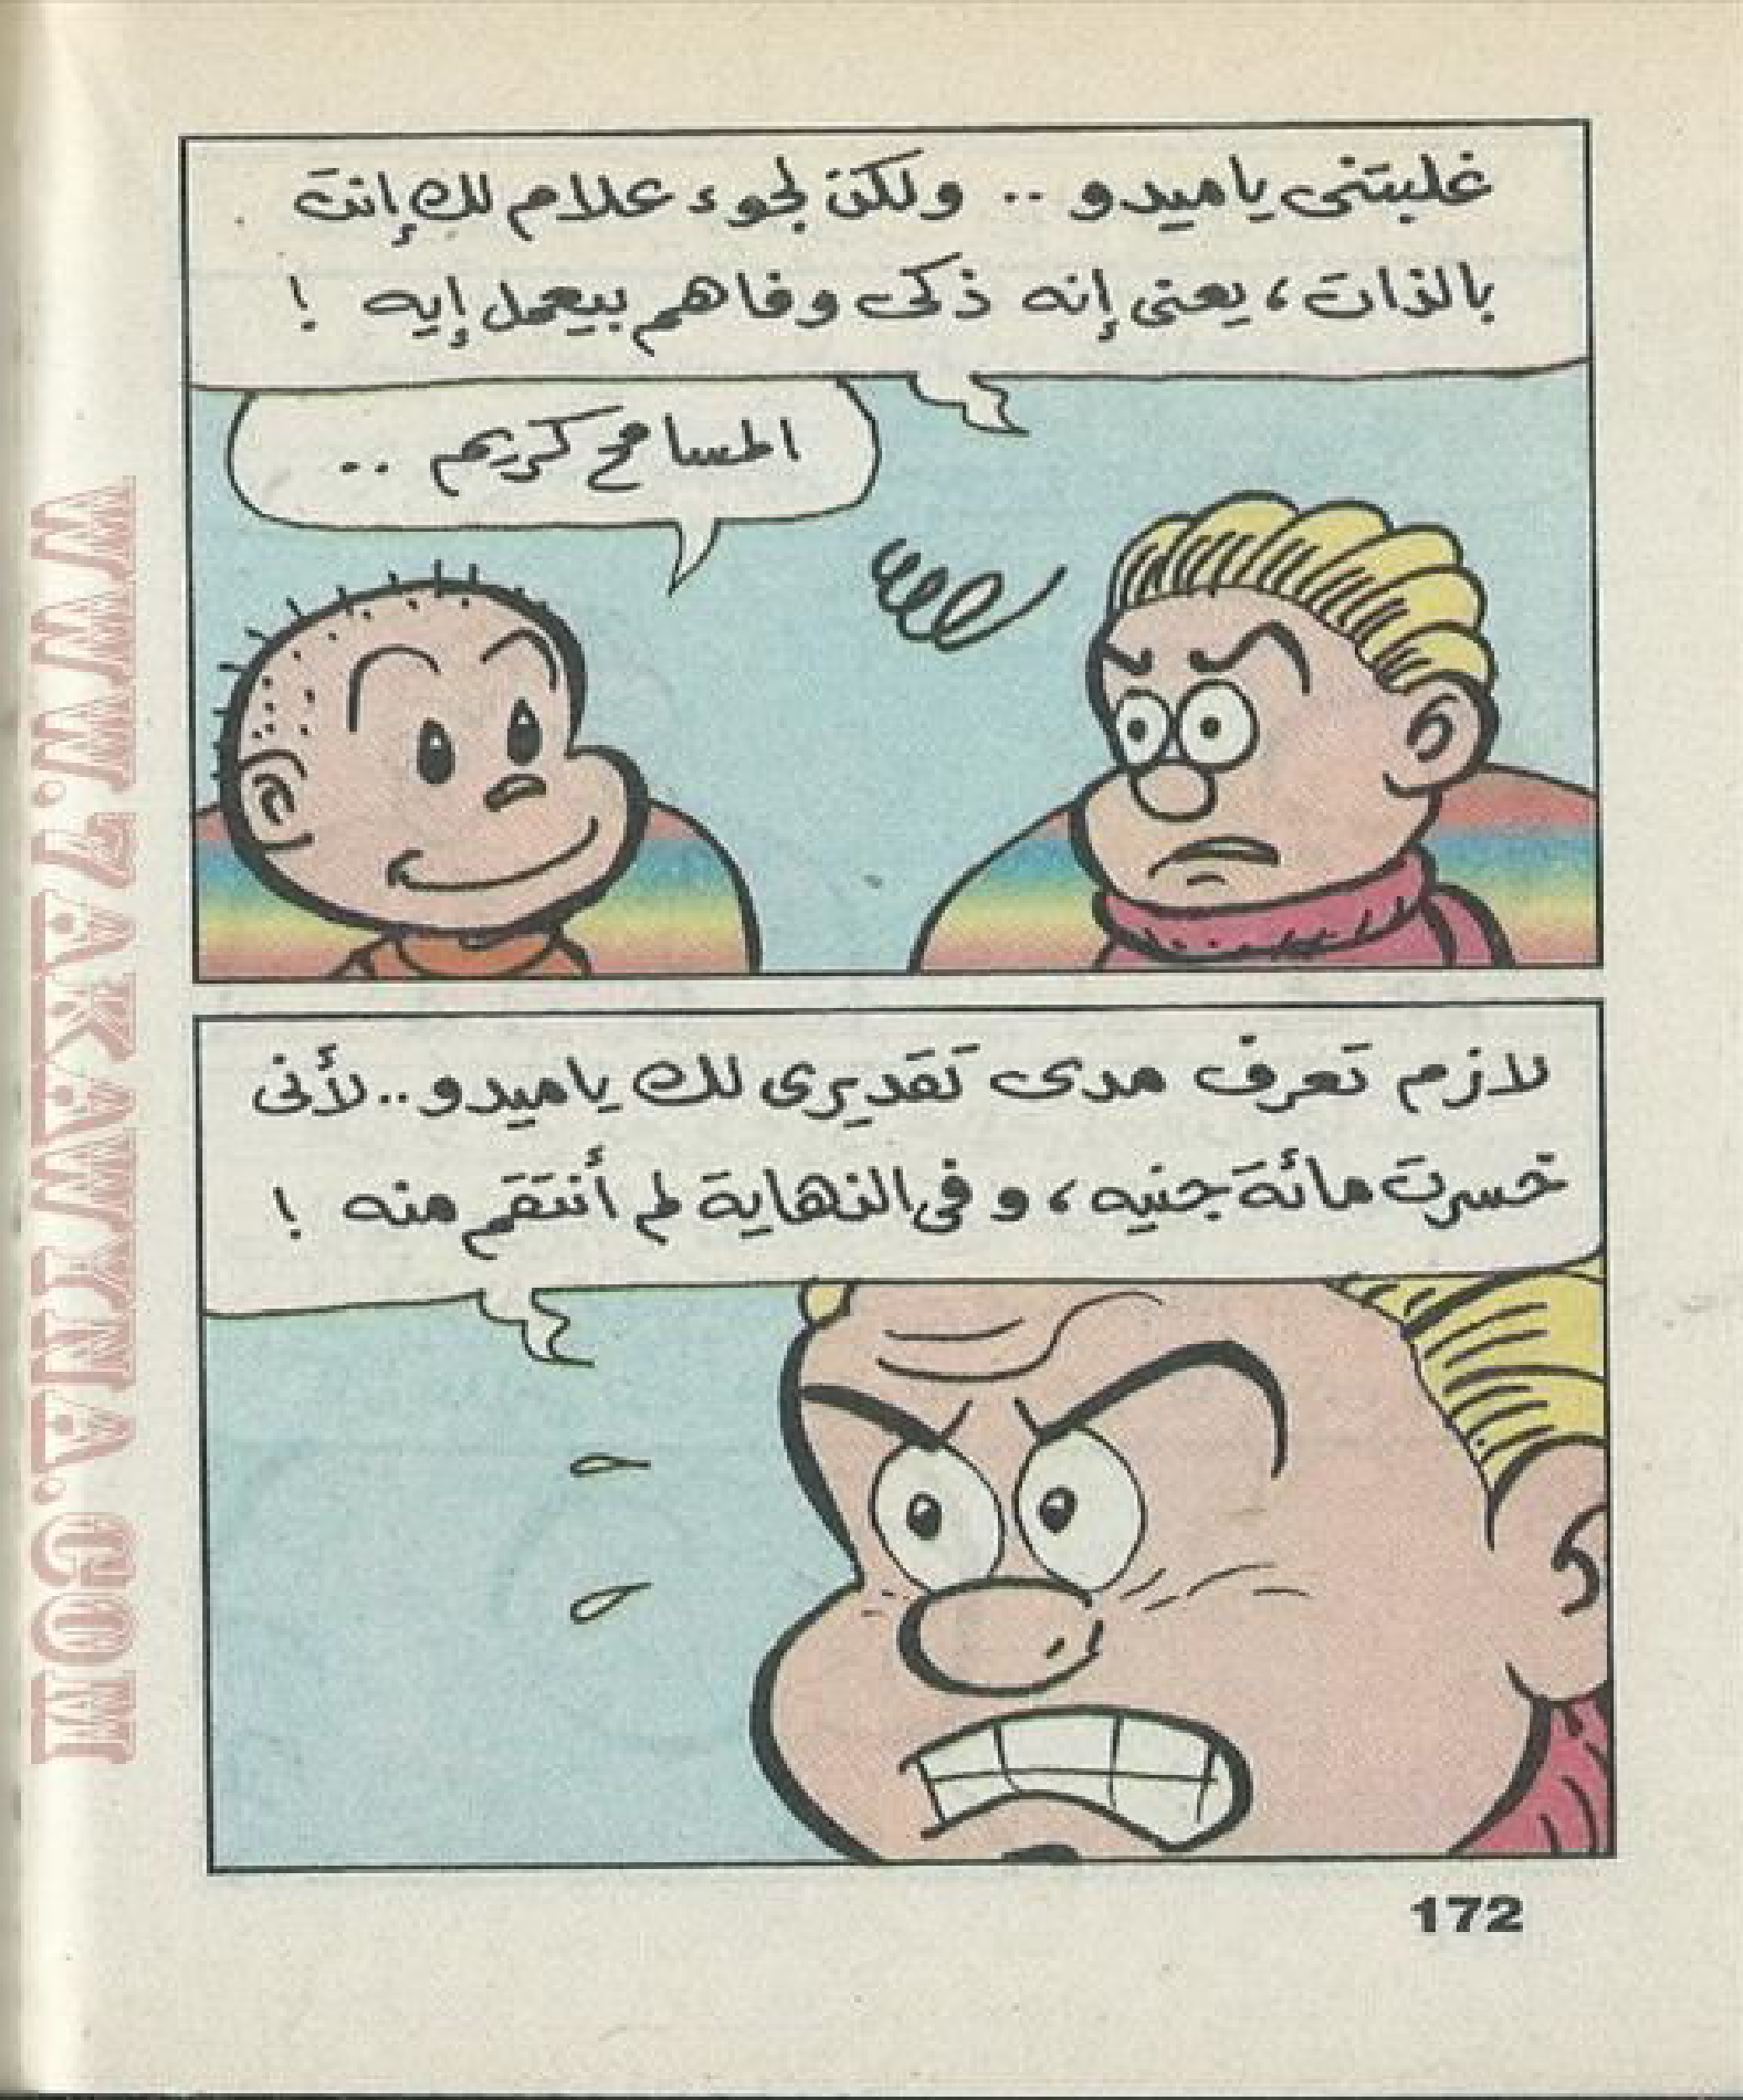 غلبتنى ياميدو .. ولكن لجوء علام لك إنت
بالذات، يعنى إنه ذكى وفاهم بيعمل إيه !
المسامح كريم ..
لازم تعرف مدى تقديرى لك ياميدو.. لأنى
خسرت مائة جنيه، وفى النهاية لم أنتقم منه !
172
WWW.7AKAWINA.COM